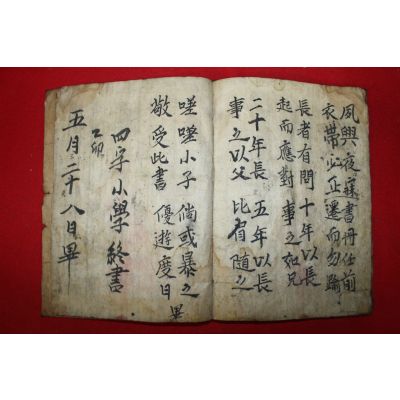 夙興夜寐 書冊在前
衣帶必正
長者有問 十年以長
起而應對 事之如兄
二十年長 五年以長
事之以父 比肩隨之
嗟嗟小子 倘或暴之
敬受此書 優遊度日
畢
四字小學終書
乙卯
五月二十八日畢